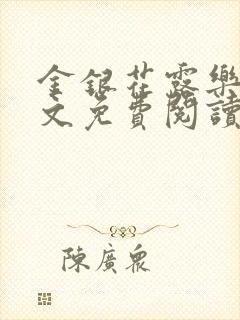 金銀花露樂
文免費閱讀
陳廣眾